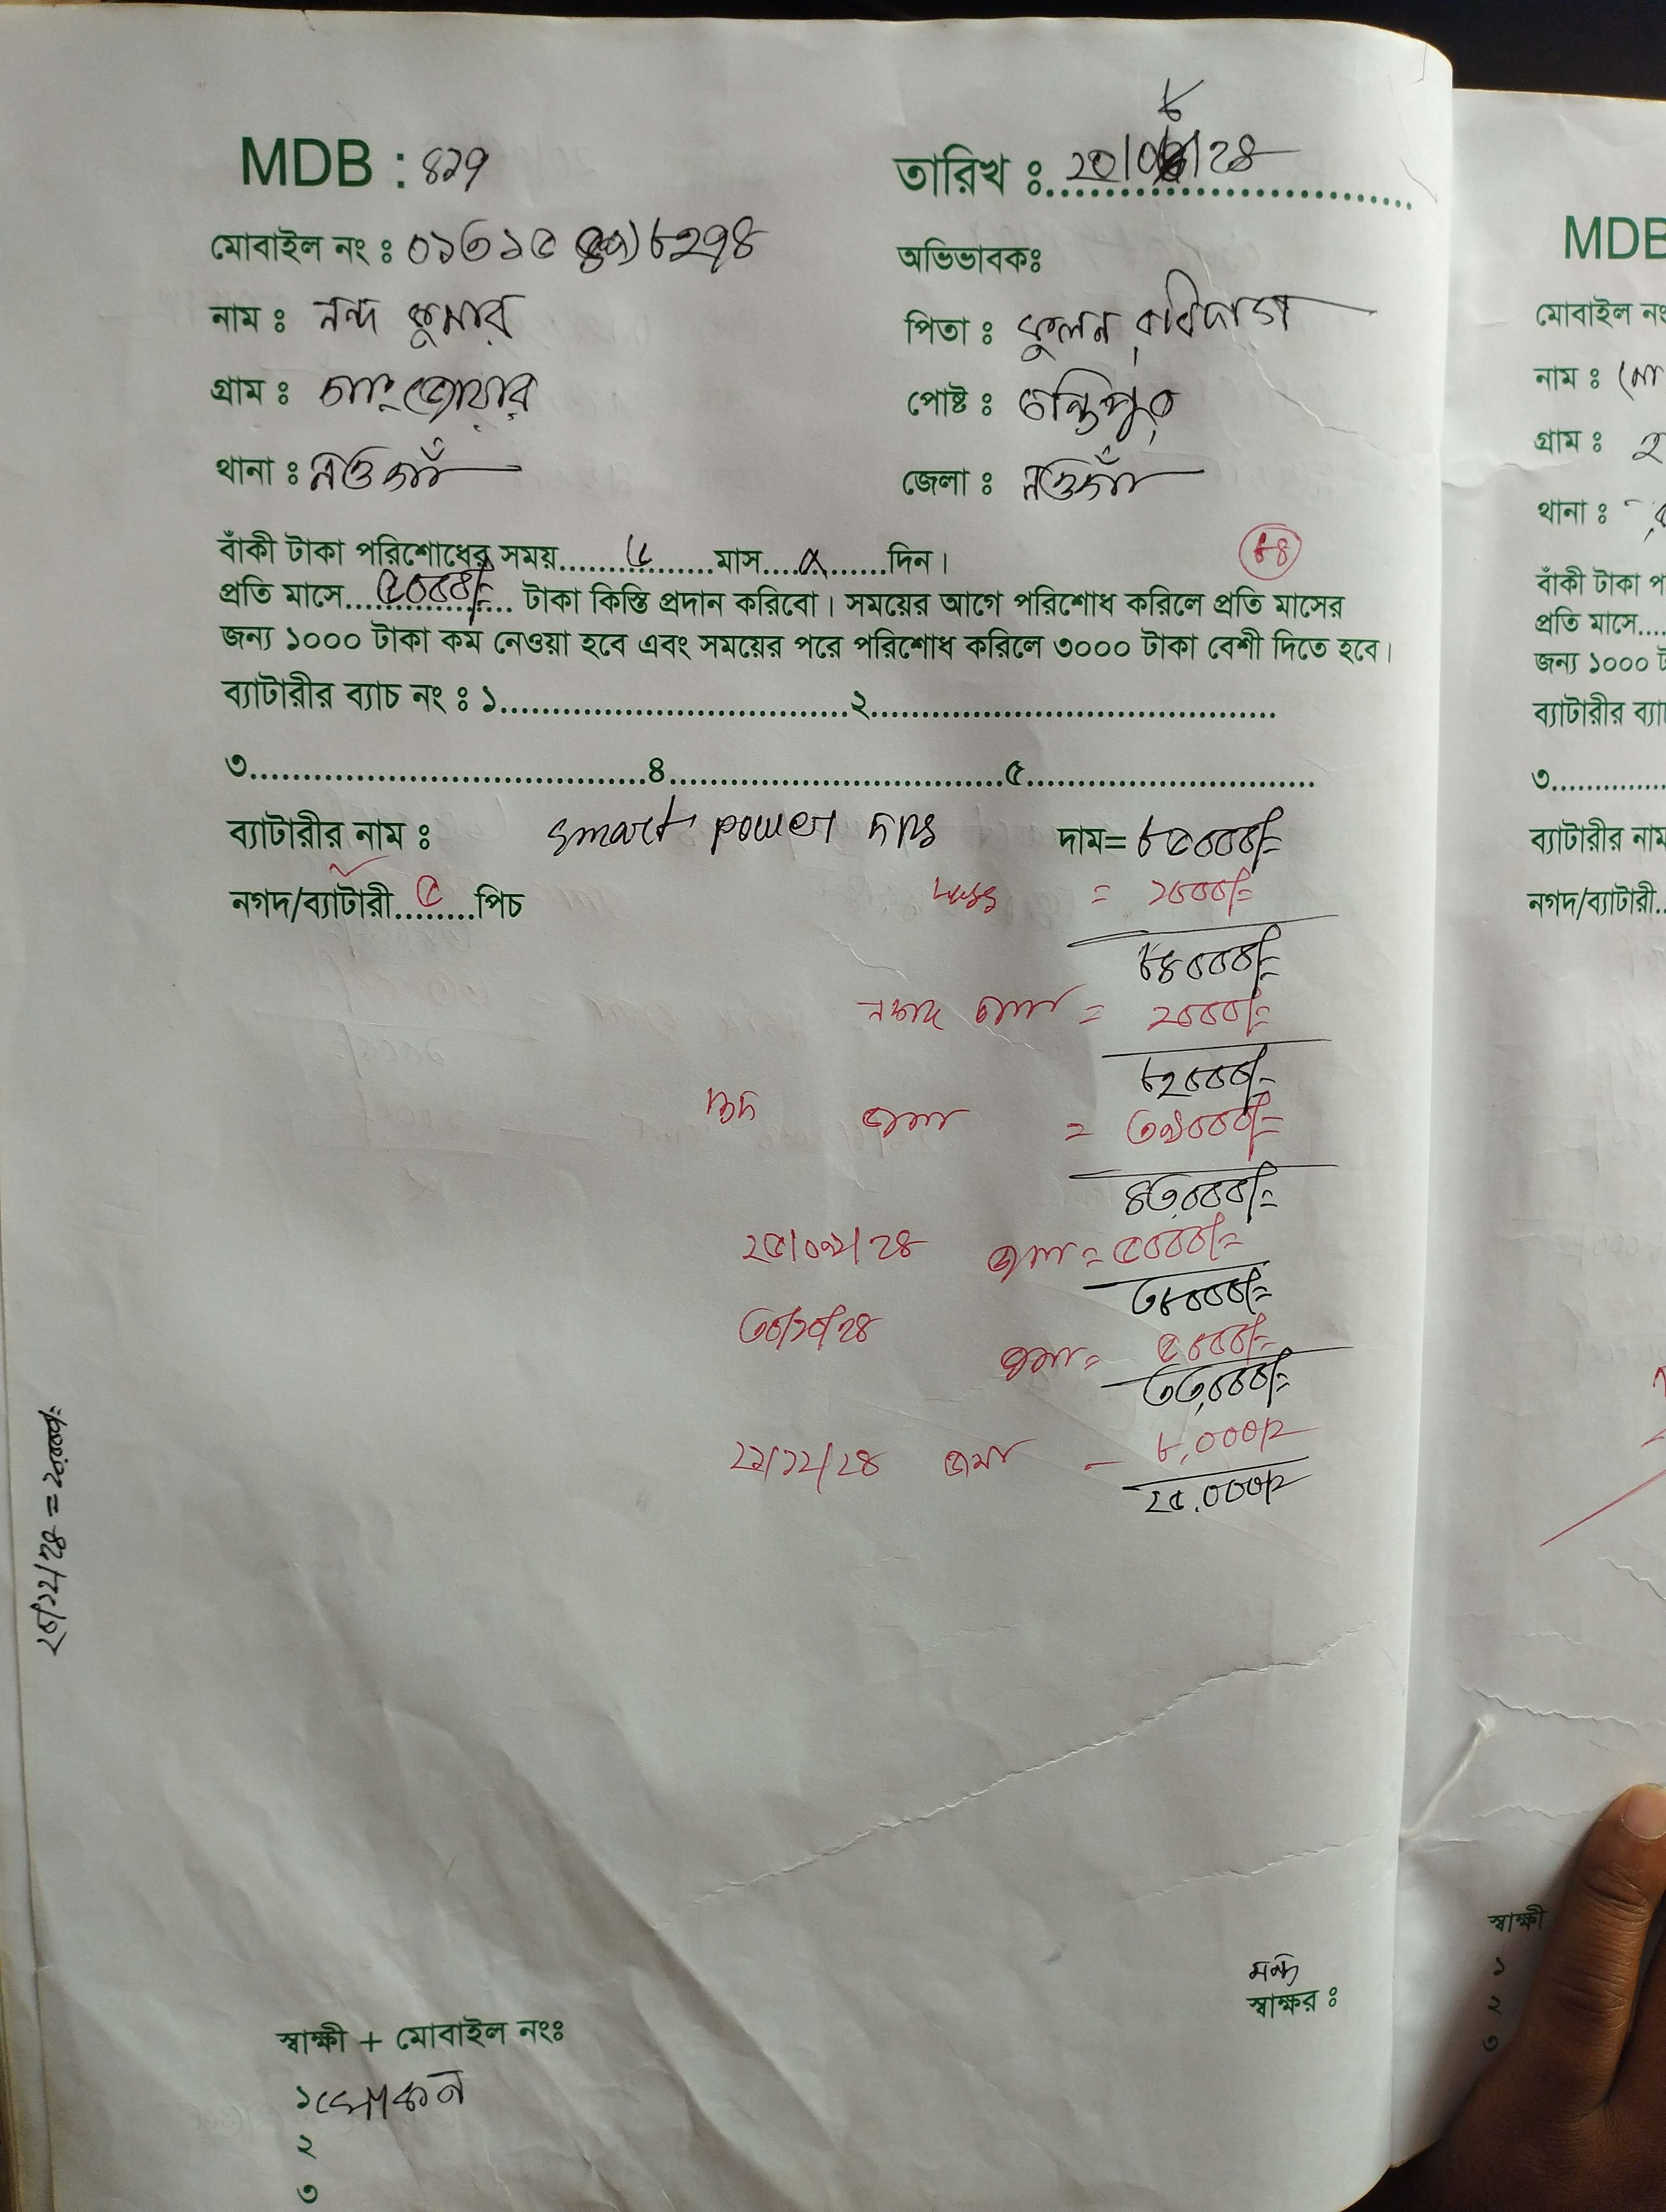 MDB : ৪২৭
তারিখ ঃ ২০/০৮/২৪
মোবাইল নং ঃ ০১৩১৫ ৮২৭৪
অভিভাবকঃ
নাম ঃ নন্দ কুমার
পিতা ঃ ফুলন রবিদাস
গ্রাম ঃ
পোষ্ট ঃ চন্ডিপুর
থানা ঃ নওগাঁ
জেলা ঃ নওগাঁ
বাঁকী টাকা পরিশোধের সময়................মাস...........দিন।
৮৪
প্রতি মাসে...৫০০০/=... টাকা কিস্তি প্রদান করিবো। সময়ের আগে পরিশোধ করিলে প্রতি মাসের
জন্য ১০০০ টাকা কম নেওয়া হবে এবং সময়ের পরে পরিশোধ করিলে ৩০০০ টাকা বেশী দিতে হবে।
ব্যাটারীর ব্যাচ নং ঃ ১..................................২.......................................
৩......................................৪................................৫...........................
ব্যাটারীর নাম ঃ smart power দাম= ৮৫০০০/=
নগদ/ব্যাটারী...৫...পিচ
= ১০০০/=
৮৪০০০/=
নগদ জমা = ২০০০/=
৮২০০০/=
জমা = ৩৯০০০/=
৪৩,০০০/=
২৫/০৯/২৪ জমা = ৫০০০/=
৩৮০০০/=
৩০/১০/২৪ জমা = ৫০০০/=
৩৩,০০০/=
২১/১২/২৪ জমা – ৮,০০০/=
২৫,০০০/=
স্বাক্ষর ঃ
স্বাক্ষী + মোবাইল নংঃ
১
২
৩
MDB
মোবাইল নং
নাম ঃ
গ্রাম ঃ
থানা ঃ
বাঁকী টাকা প
প্রতি মাসে....
জন্য ১০০০ ট
ব্যাটারীর ব্যা
৩..............
ব্যাটারীর নাম
নগদ/ব্যাটারী..
স্বাক্ষী
১
২
৩